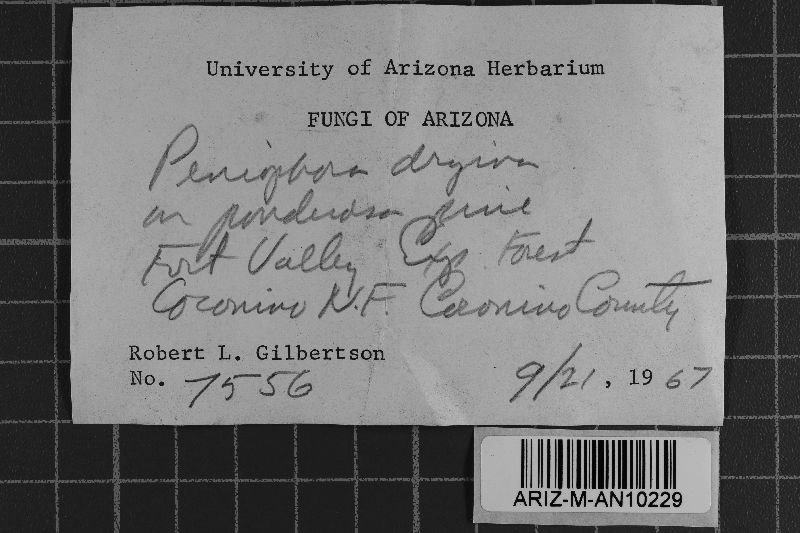 University of Arizona Herbarium
FUNGI OF ARIZONA
Peniophora dryina
on ponderosa pine
Fort Valley Exp Forest
Coconino N.F. Coconino County
Robert L. Gilbertson
No. 7556 9/21, 1967
ARIZ-M-AN10229